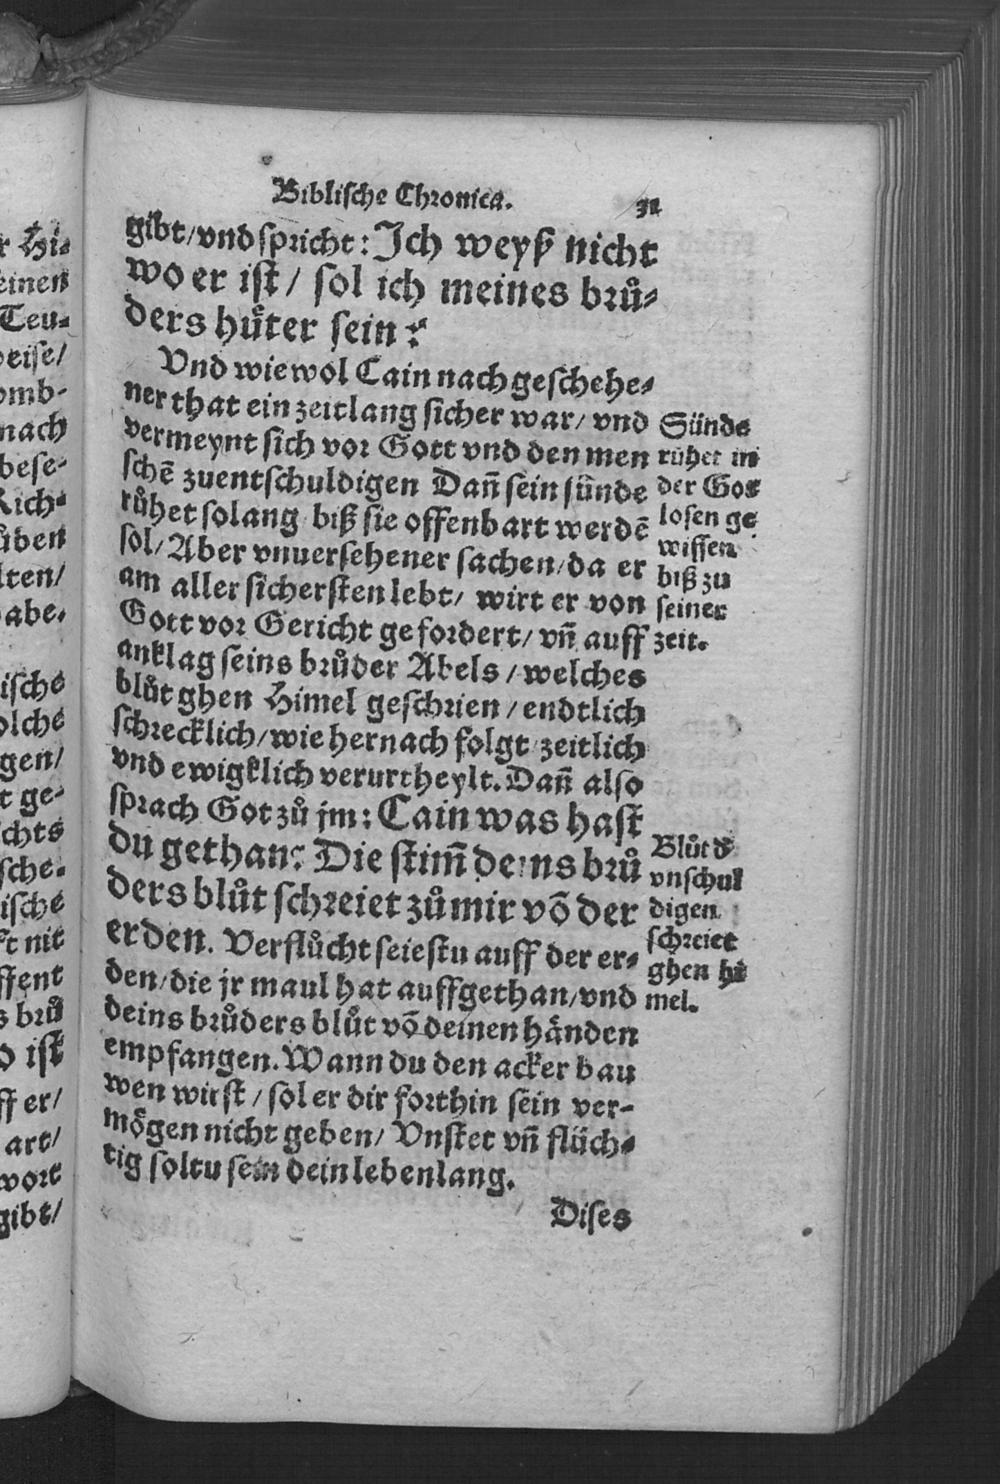 Biblische Chronica. 31
gibt/vnd spricht: Ich weyß nicht
wo er ist / sol ich meines brů-
ders hu̇ter sein?
Vnd wiewol Cain nach geschehe-
ner that ein zeitlang sicher war/ vnd
vermeynt sich vor Gott vnd den men
schē zuentschuldigen Dañ sein sünde
růhet solang biß sie offenbart werdē
sol/ Aber vnuersehener sachen/da er
am aller sichersten lebt/ wirt er von
Gott vor Gericht gefordert/ vñ auff
anklag seins brůder Abels / welches
blůt ghen Himel geschrien / endtlich
schrecklich/wie hernach folgt zeitlich
vnd ewigklich verurtheylt. Dañ also
sprach Got zů jm: Cain was hast
du gethan? Die stim̃ deins brů
ders blůt schreiet zů mir võ der
erden. Verflůcht seiestu auff der er-
den/die jr maul hat auffgethan/vnd
deins brůders blůt võ deinen händen
empfangen. Wann du den acker bau
wen wirst / sol er dir forthin sein ver-
mögen nicht geben/ Vnstet vñ flüch-
tig soltu sein dein lebenlang.
Dises
Sünde
rühet in
der Got
losen ge
wissen
biß zu
seiner
zeit.
Blůt d̕
vnschul
digen
schreiet
ghen hi
mel.
r Hi-
einen
Teu-
omb-
nach
bese-
Rich-
üben
lten/
abe.
ische
olche
gen/
t ge-
chts
sche-
ische
ft nit
ffent
s brů
o ist
ff er/
art/
wort
gibt/